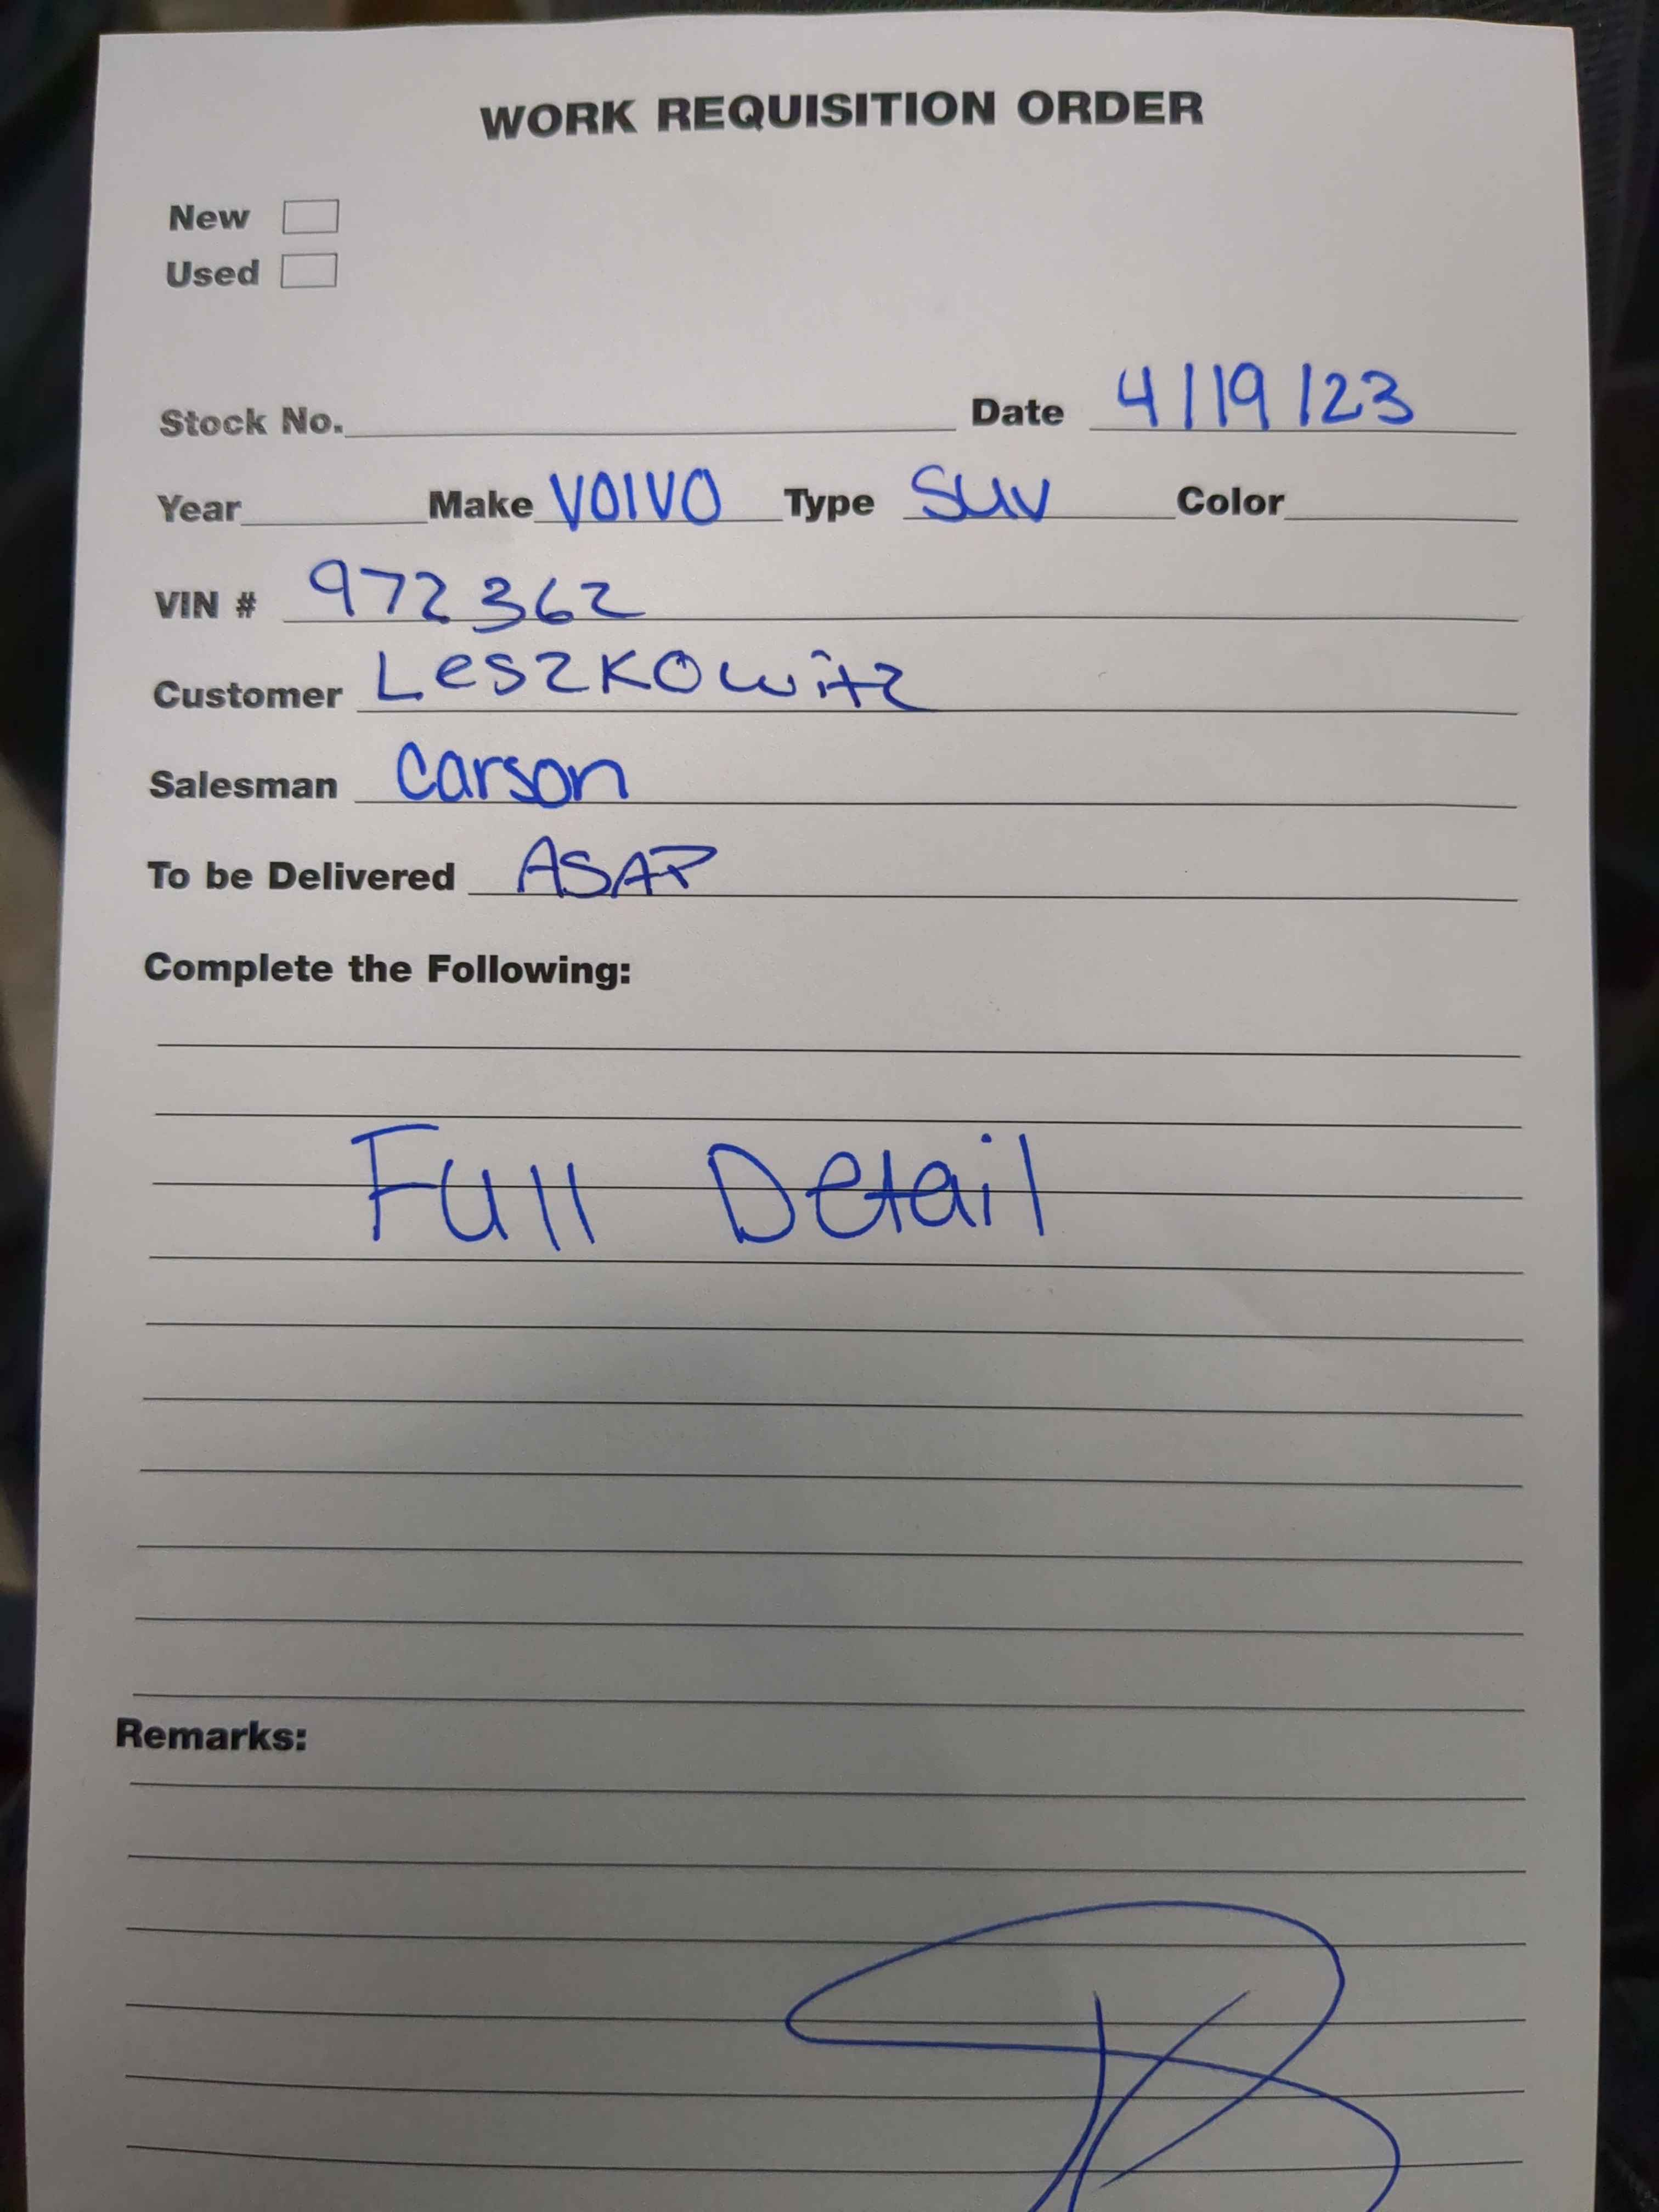 WORK REQUISITION ORDER
New
Used
Stock No. Date 4/19/23
Year Make Volvo Type SUV Color
VIN # 972362
Customer Leszkowitz
Salesman Carson
To be Delivered ASAP
Complete the Following:
Full Detail
Remarks: